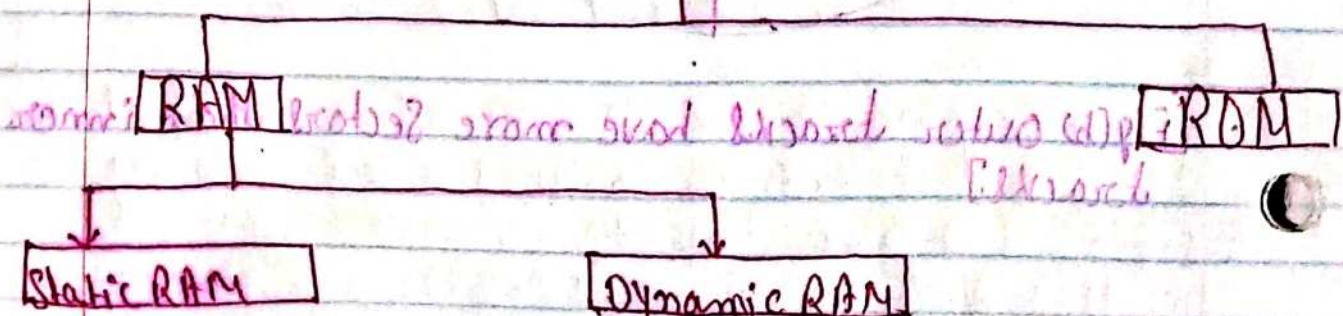 RAM
ROM
Static RAM
Dynamic RAM